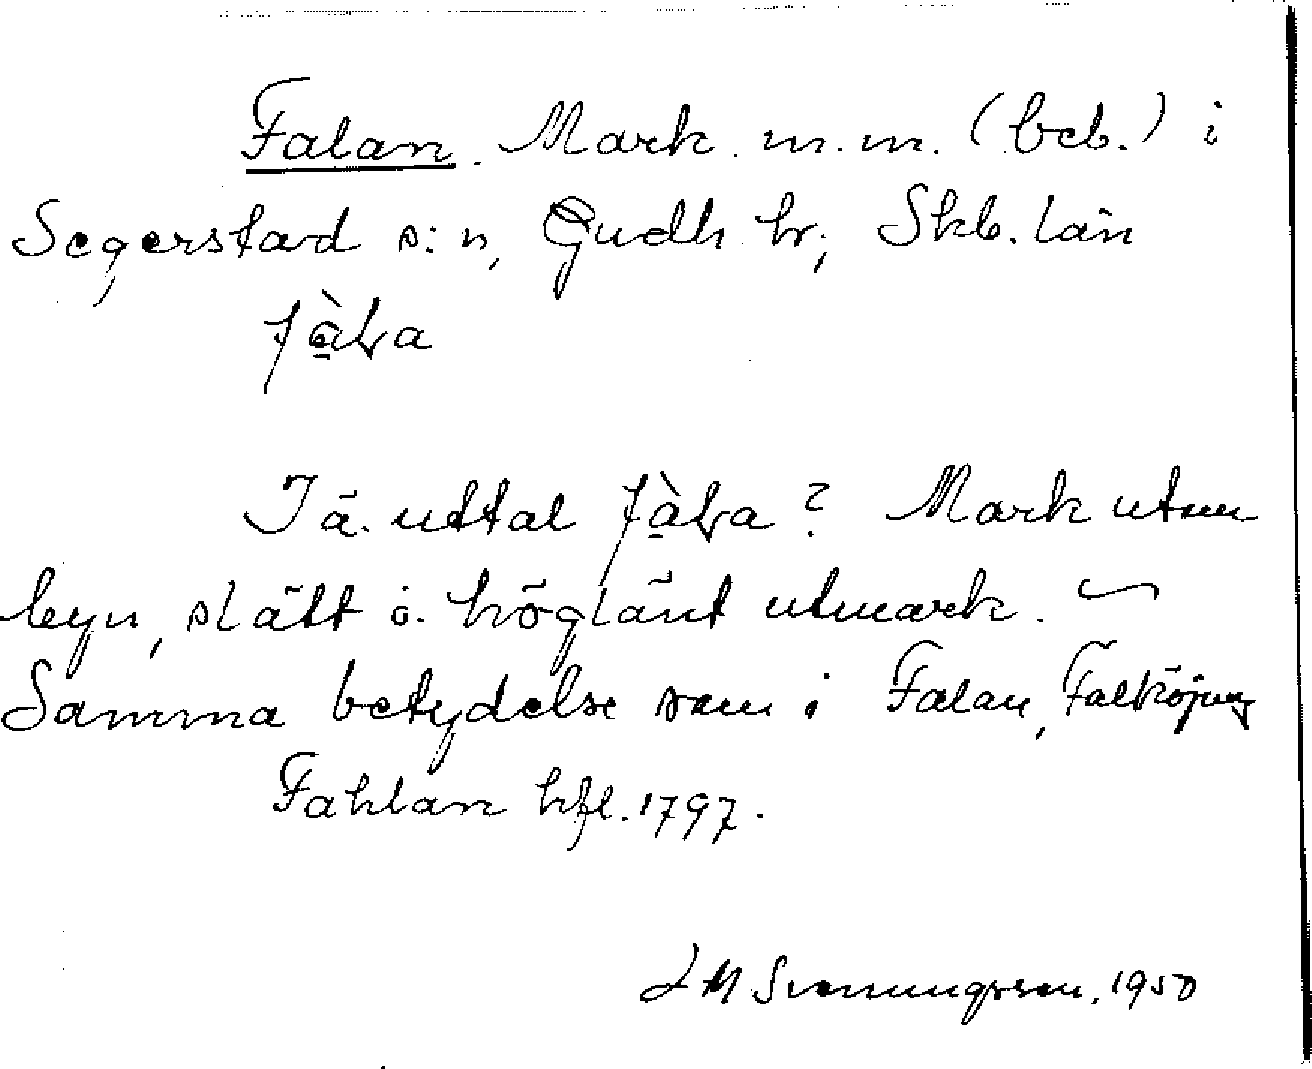 Falan. Mark m.m. (beb.) i
Segerstad s:n, Gudh hr; Skb. län
fàɫa
Jä. uttal fàɫa? Mark utom
byn, slätt o. höglänt utmark. ~
Samma betydelse som i Falan, Falköping
Fahlan hfl. 1797.
Svenungsson, 1950